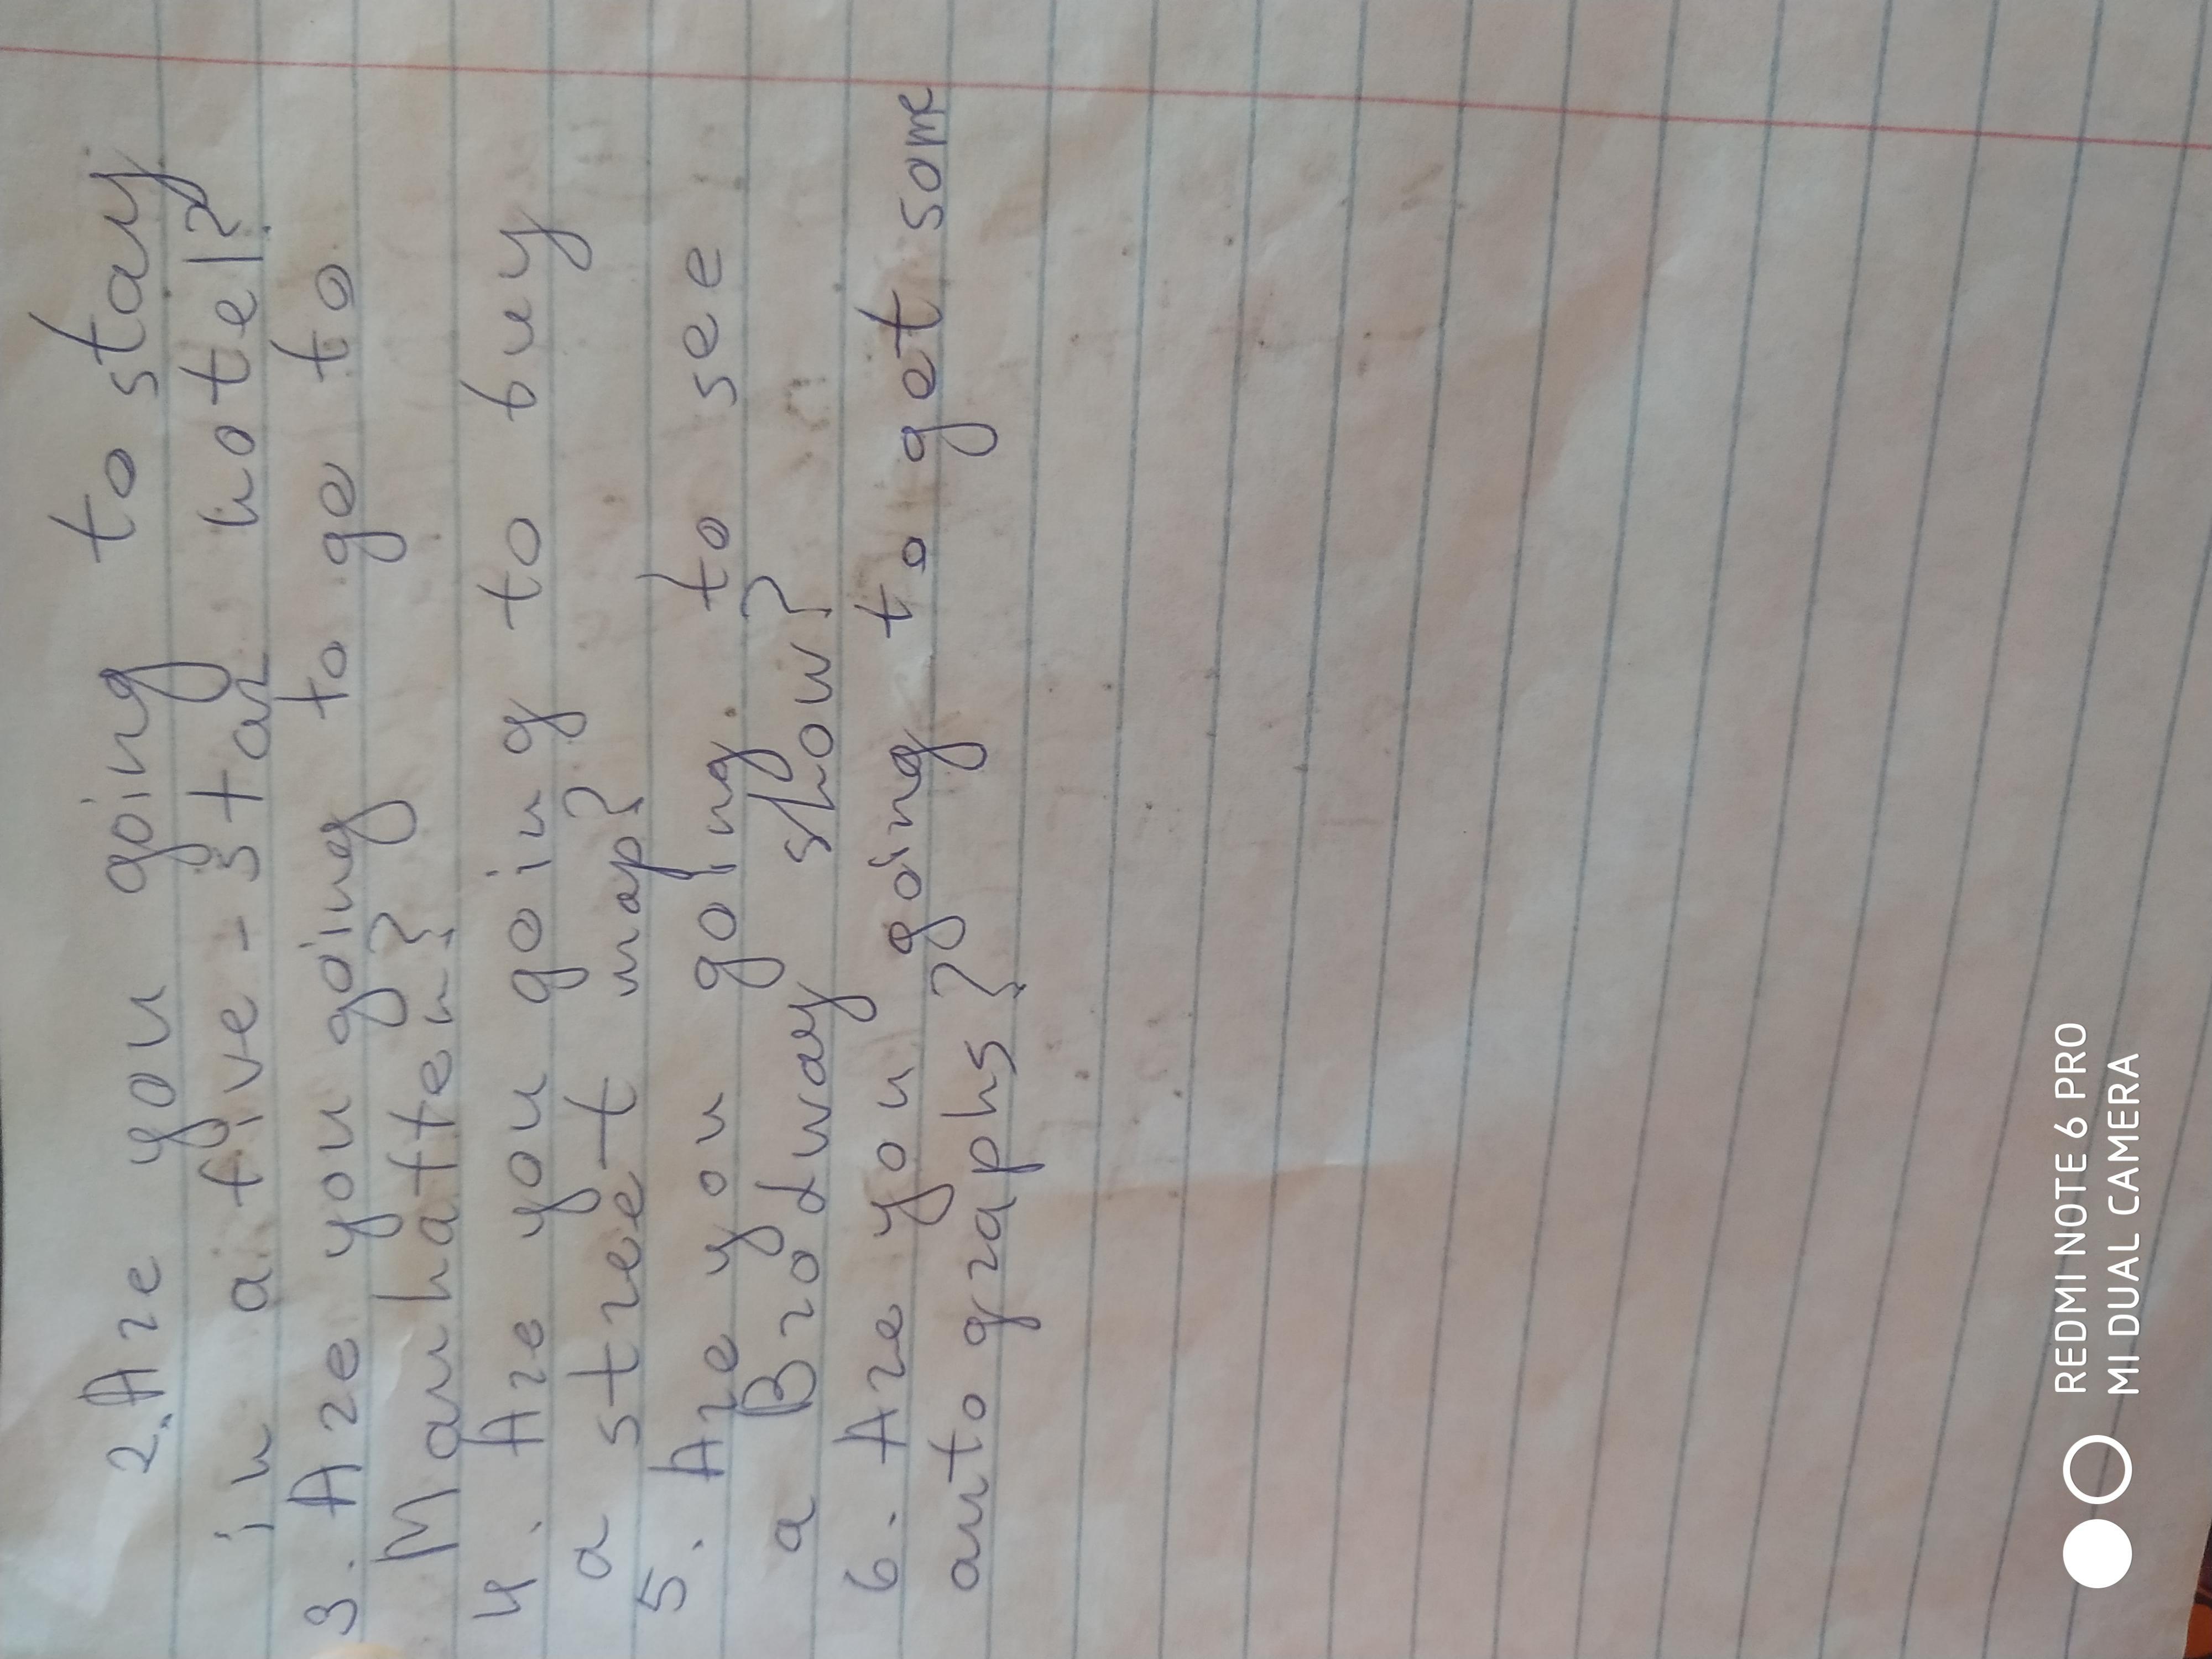 2. Are you going to stay
in a five-star hotel?
3. Are you going to go to
Manhatten?
4. Are you going to buy
a street map?
5. Are you going to see
a Brodway show?
6. Are you going to get some
auto graphs?
REDMI NOTE 6 PRO
MI DUAL CAMERA